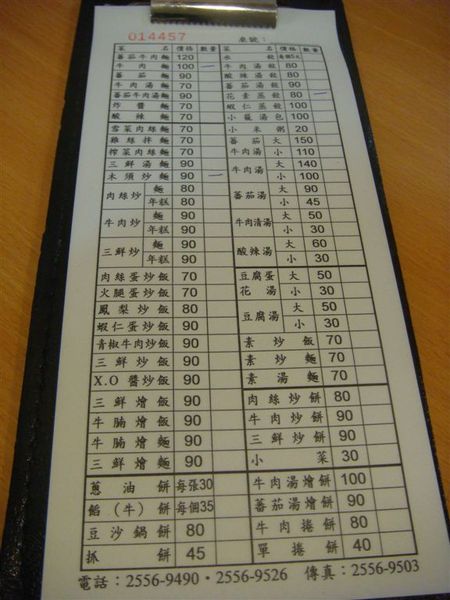 014457 桌號：
菜名 價格 數量 菜名 價格 數量
蕃茄牛肉麵 120 水餃 每個5元
牛肉麵 100 一 牛肉湯餃 80
蕃茄麵 90 酸辣湯餃 80
牛肉湯麵 70 蕃茄湯餃 90
蕃茄牛肉湯麵 90 花素蒸餃 80 一
炸醬麵 70 蝦仁蒸餃 100
酸辣麵 70 小籠湯包 100
雪菜肉絲麵 90 小米粥 20
雞絲拌麵 70 蕃茄牛肉湯 大 150
榨菜肉絲麵 90 小 110
三鮮湯麵 90 牛肉湯 大 140
木須炒麵 90 一 小 100
肉絲炒 麵 80 蕃茄湯 大 90
年糕 80 小 45
牛肉炒 麵 90 牛肉清湯 大 50
年糕 90 小 30
三鮮炒 麵 90 酸辣湯 大 60
年糕 90 小 30
肉絲蛋炒飯 70 豆腐蛋花湯 大 50
火腿蛋炒飯 70 小 30
鳳梨炒飯 80 豆腐湯 大 50
蝦仁蛋炒飯 90 小 30
青椒牛肉炒飯 90 素炒飯 70
三鮮炒飯 90 素炒麵 70
X.O醬炒飯 90 素湯麵 70
三鮮燴飯 90 肉絲炒餅 80
牛腩燴飯 90 牛肉炒餅 90
牛腩燴麵 90 三鮮炒餅 90
三鮮燴麵 90 小菜 30
蔥油餅 每張30 牛肉湯燴餅 100
餡(牛)餅 每個35 蕃茄湯燴餅 90
豆沙鍋餅 80 牛肉捲餅 80
抓餅 45 單捲餅 40
電話：2556-9490・2556-9526 傳真：2556-9503